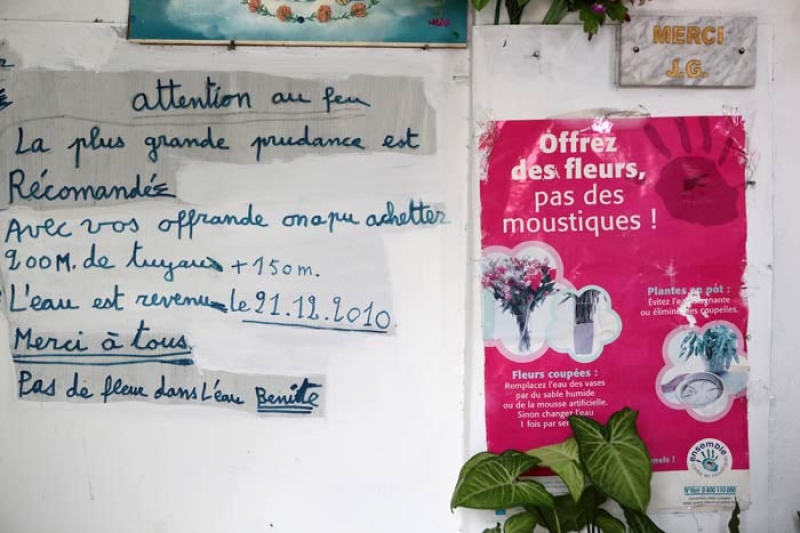 attention au feu
La plus grande prudance est
Récomandée
Avec vos offrande on a pu achetter
200M. de tuyaux + 150m.
L'eau est revenue le 21.12.2010
Merci à tous
Pas de fleur dans L'eau Benite
MERCI
J.G.
Offrez
des fleurs,
pas des
moustiques !
Plantes en pôt :
Évitez l'eau
ou élimine les coupelles.
Fleurs coupées :
Remplacez l'eau des vases
par du sable humide
ou de la mousse artificielle.
Sinon changez l'eau
1 fois par
ensemble
N°Vert 0 800 110 000